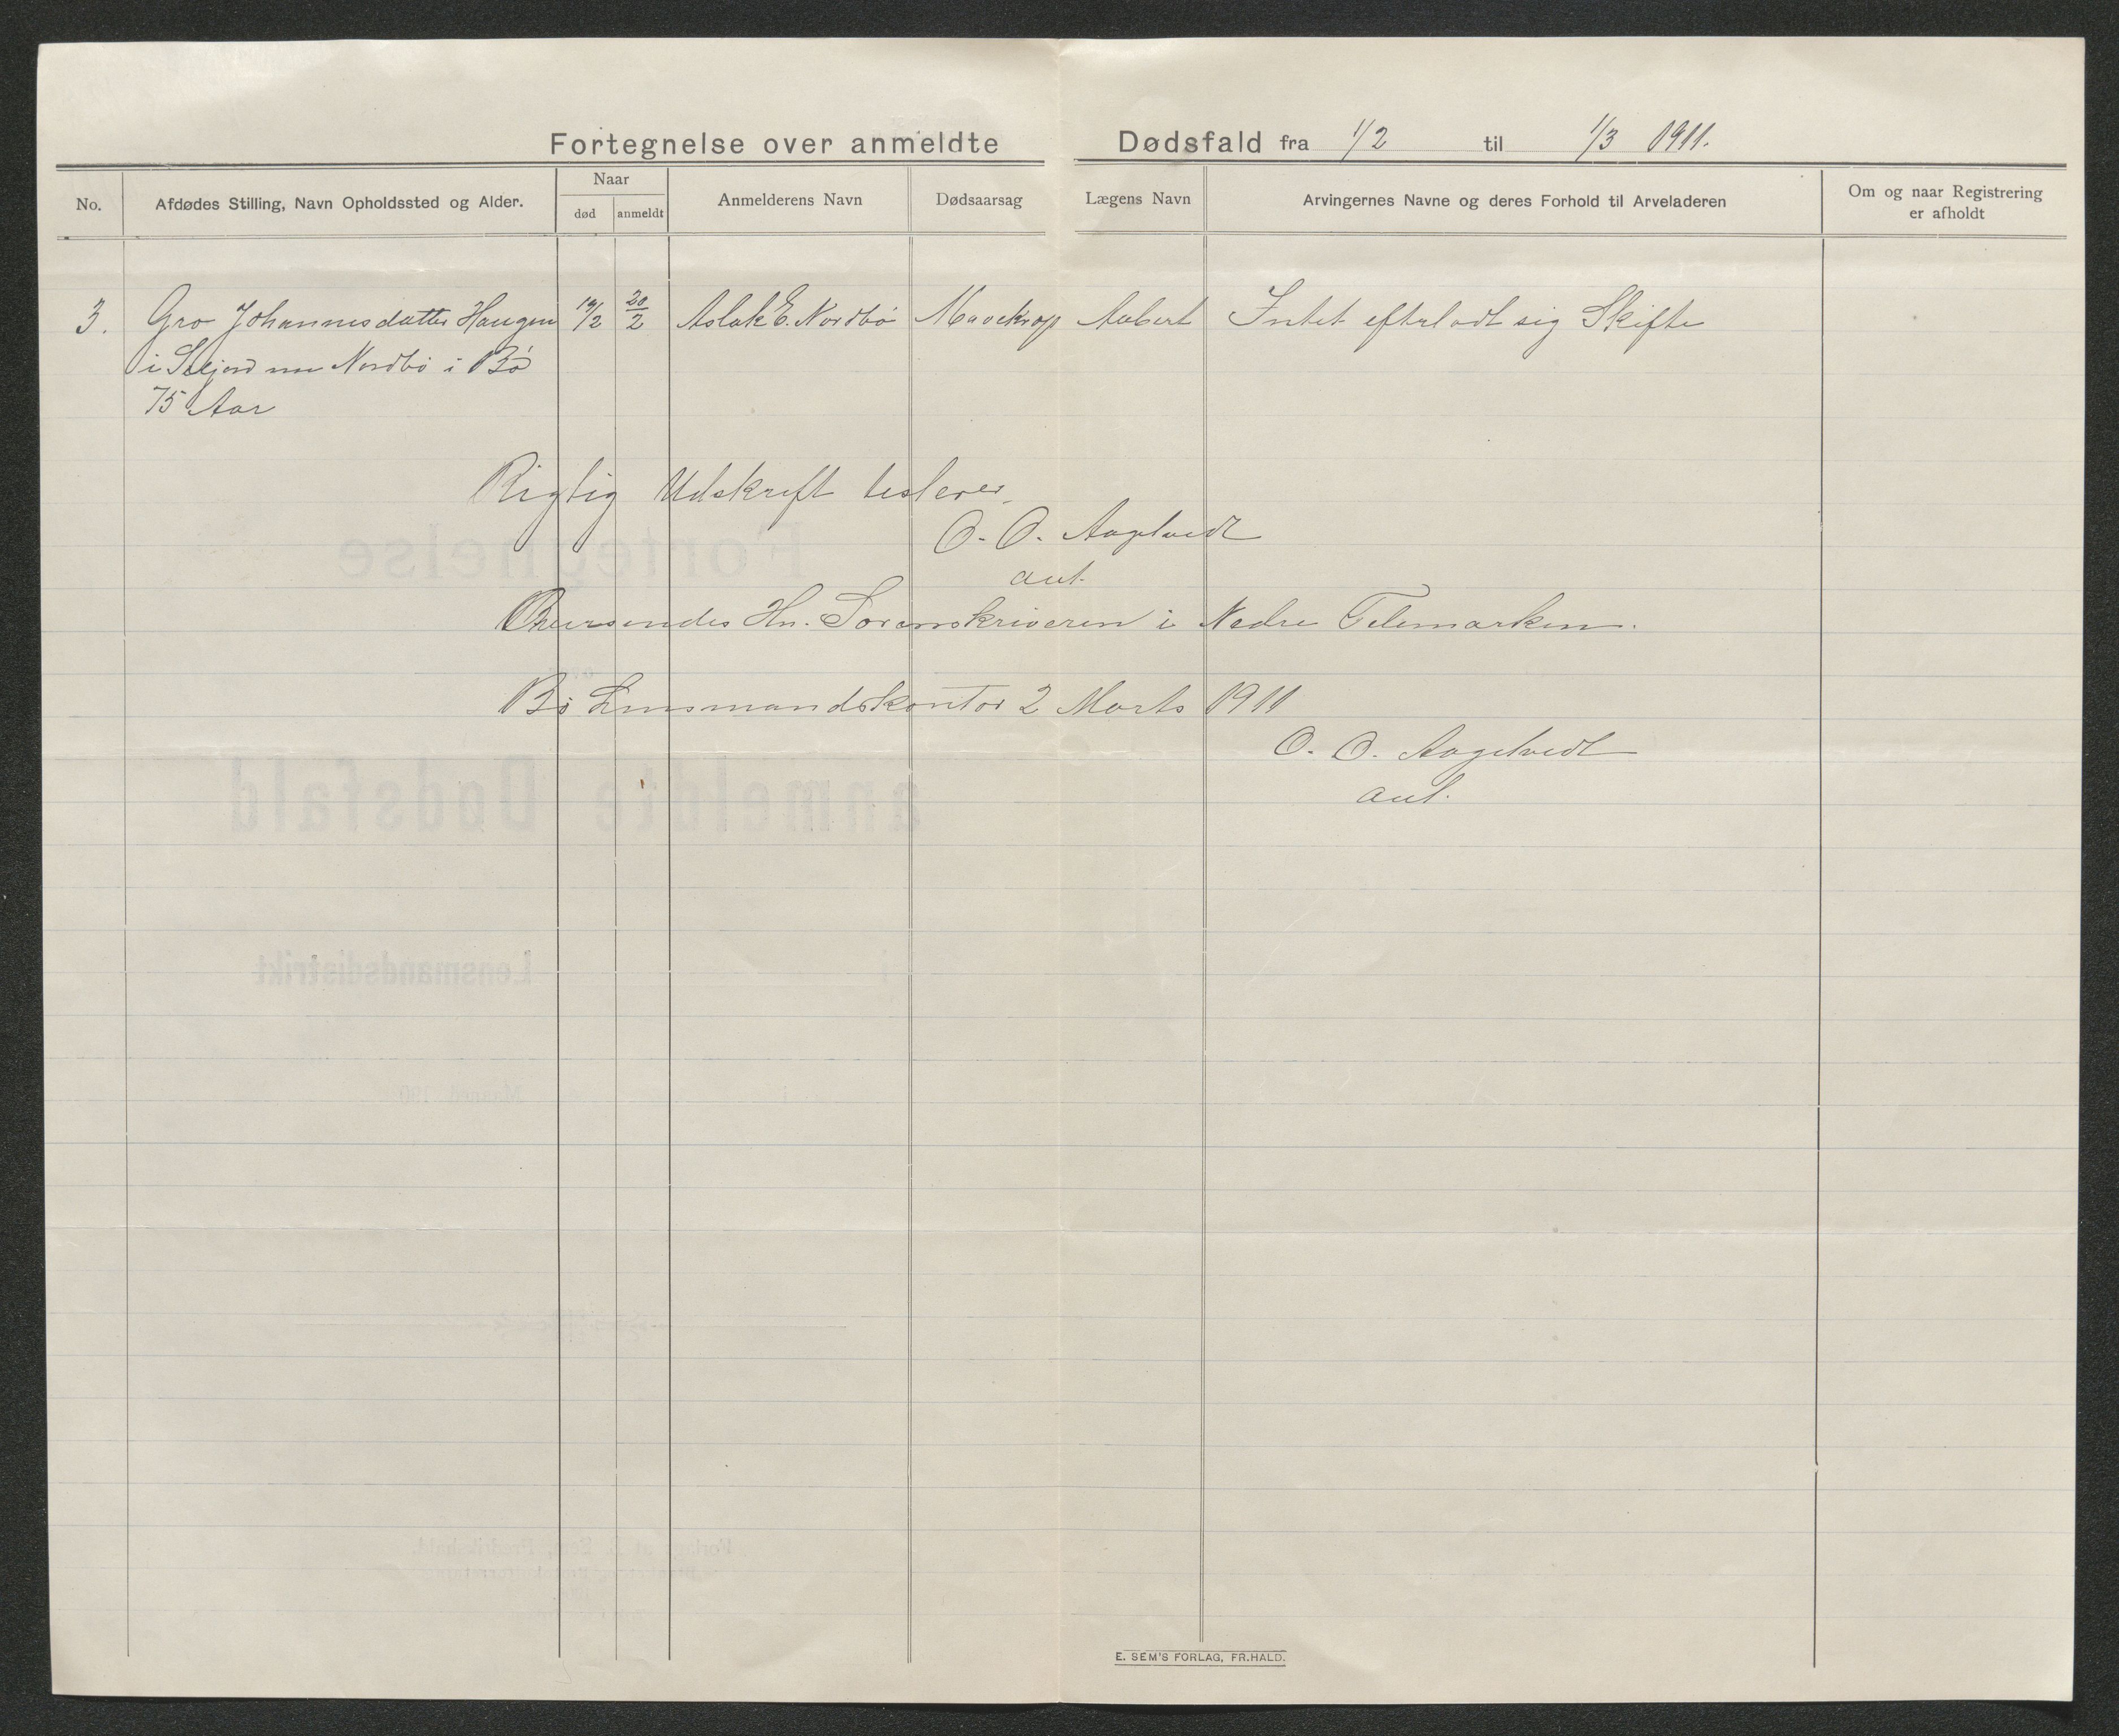 Fortegnelse over anmeldte Dødsfald fra 1/2 til 1/3 1911.
No. Afdødes Stilling, Navn Opholdssted og Alder. Naar død anmeldt Anmelderens Navn Dødsaarsag Lægens Navn Arvingernes Navne og deres Forhold til Arveladeren Om og naar Registrering er afholdt
3. Gro Johannesdatter Haugen 19/2 20/2 Aslak E. Nordbø Mavekræft Aubert Intet efterladt sig Skifte
i Seljord nu Nordbø i Bø
75 Aar
Rigtig Udskrift testerer
O. O. Aagetvedt
aut.
Oversendes Hr. Sorenskriveren i Nedre Telemarken.
Bø Lensmandskontor 2 Marts 1911
O. O. Aagetvedt
aut.
E. SEM'S FORLAG, FR.HALD.